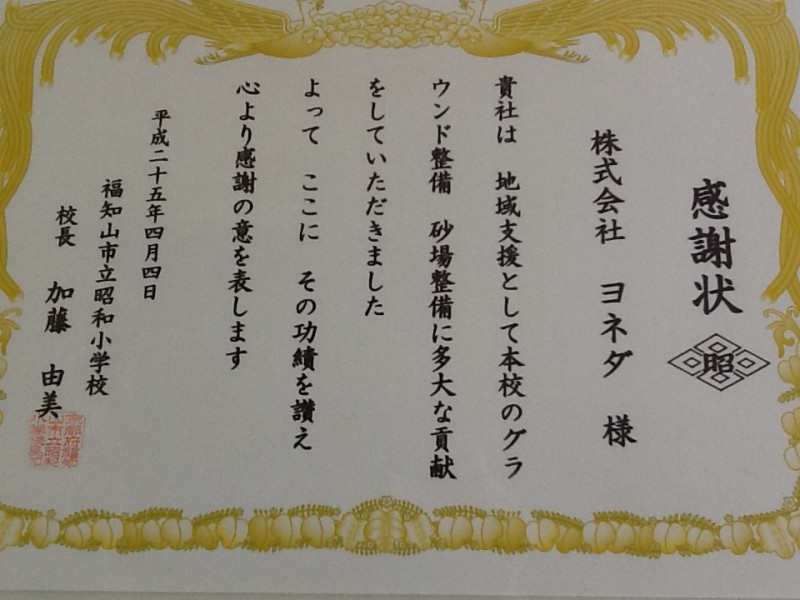 感謝状
昭
株式会社 ヨネダ 様
貴社は 地域支援として本校のグラ
ウンド整備 砂場整備に多大な貢献
をしていただきました
よって ここに その功績を讃え
心より感謝の意を表します
平成二十五年四月四日
福知山市立昭和小学校
校長 加藤 由美